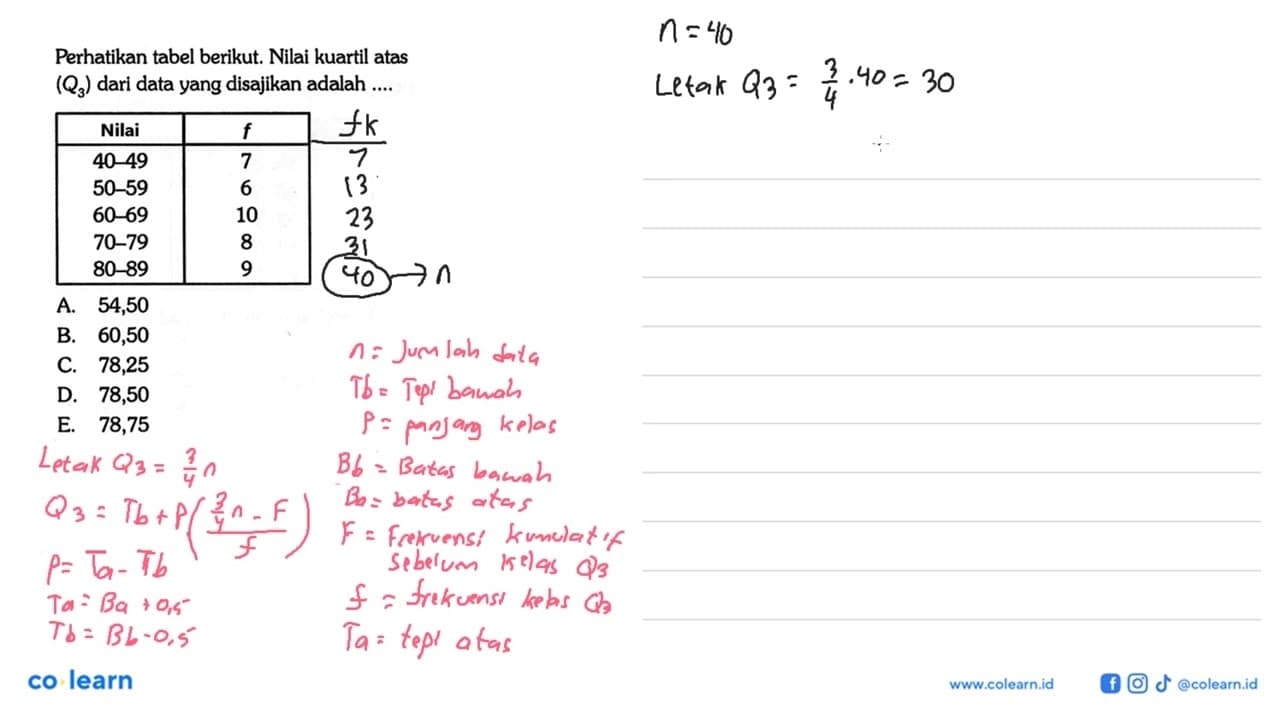 Perhatikan tabel berikut. Nilai kuartil atas
(Q₃) dari data yang disajikan adalah ....
Nilai f fk
40–49 7 7
50–59 6 13
60–69 10 23
70–79 8 31
80–89 9 40 → n
A. 54,50
B. 60,50
C. 78,25
D. 78,50
E. 78,75
Letak Q3 = 3/4 n
Q3 = Tb + P((3/4 n - F)/f)
P = Ta - Tb
Ta = Ba + 0,5
Tb = Bb - 0,5
n = Jumlah data
Tb = Tepi bawah
P = panjang kelas
Bb = Batas bawah
Ba = batas atas
F = Frekuensi kumulatif
sebelum kelas Q3
f = frekuensi kelas Q3
Ta = tepi atas
n = 40
Letak Q3 = 3/4 . 40 = 30
co learn
www.colearn.id
@colearn.id